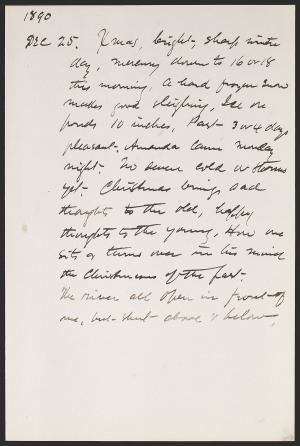 1890
Dec 25. Xmas, bright, sharp winter
day, mercury down to 16 or 18
this morning. A hard frozen snow
makes good sleighing. Ice on
ponds 10 inches. Past 3 or 4 days
pleasant. Amanda came Monday
night. No severe cold or storms
yet. Christmas brings sad
thoughts to the old, happy
thoughts to the young. How one
sits & turns over in his mind
the Christmases of the past.
The river all open in front of
me, but shut above & below.